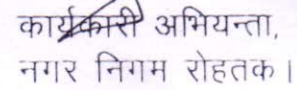 कार्यकारी अभियन्ता,
नगर निगम रोहतक।